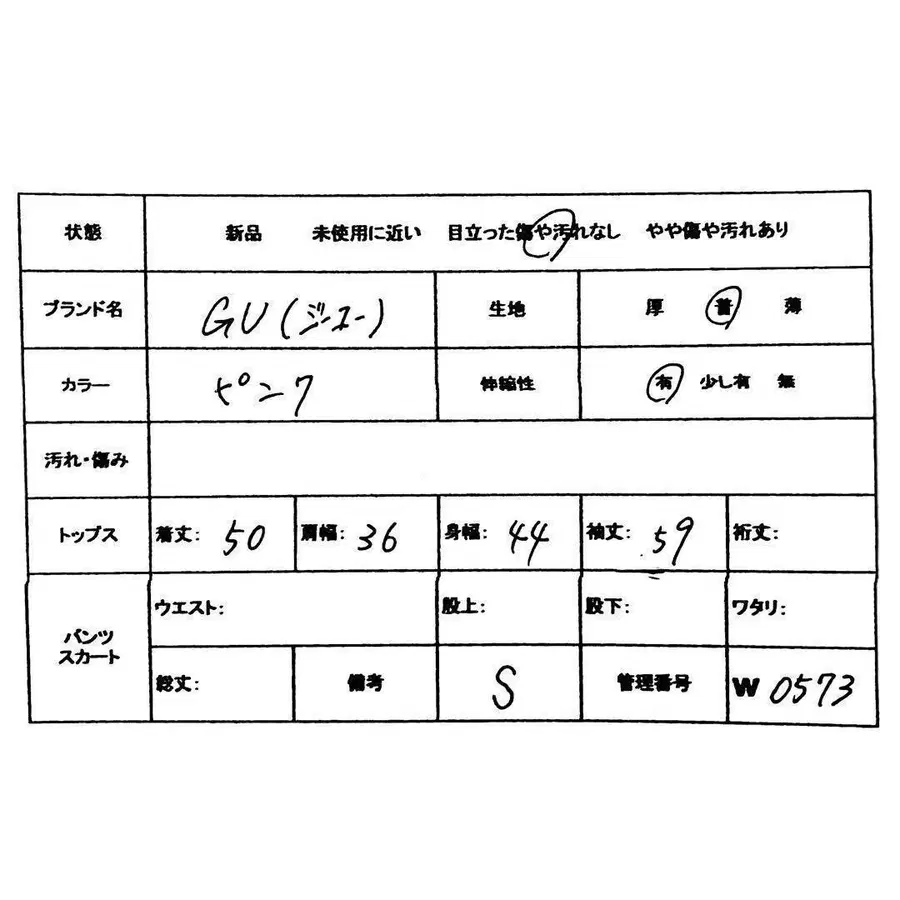 状態 新品 未使用に近い 目立った傷や汚れなし やや傷や汚れあり
ブランド名 GU(ジーユー) 生地 厚 普 薄
カラー ピンク 伸縮性 有 少し有 無
汚れ・傷み
トップス 着丈: 50 肩幅: 36 身幅: 44 袖丈: 59 裄丈:
パンツ スカート ウエスト: 股上: 股下: ワタリ:
総丈: 備考 S 管理番号 W 0573